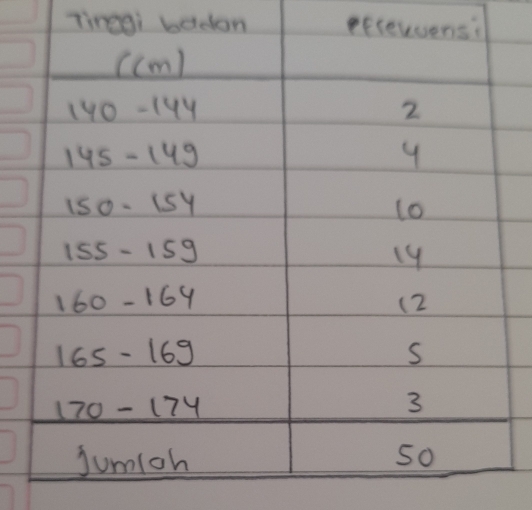 Tinggi badan Frekuensi
(cm)
140 - 144 2
145 - 149 4
150 - 154 10
155 - 159 14
160 - 164 12
165 - 169 5
170 - 174 3
Jumlah 50